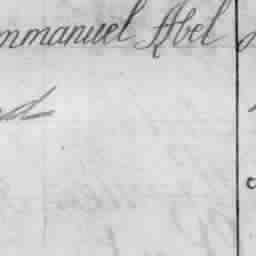 mmanuel Abel